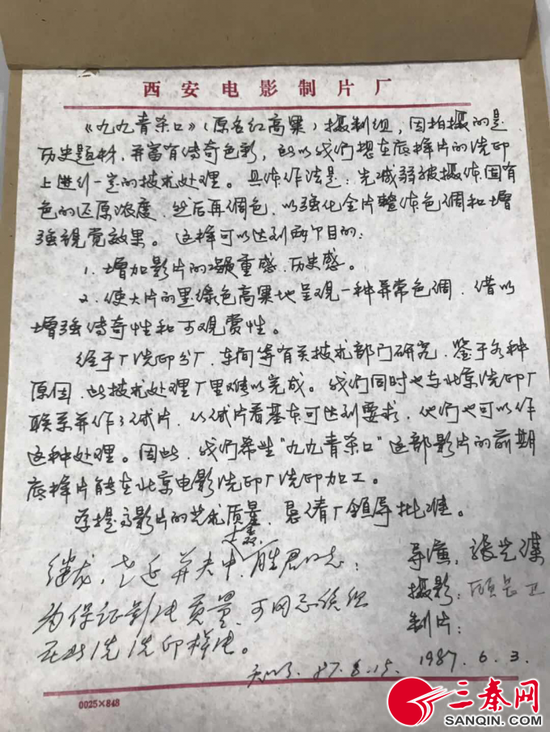 西安电影制片厂
《九九青杀口》（原名红高粱）摄制组，因拍摄的是
历史题材，并富有传奇色彩，所以我们想在底样片的洗印
上进行一定的技术处理。具体作法是：先减弱被摄体固有
色的还原浓度，然后再调色，以强化全片整体色调和增
强视觉效果。这样可以达到两个目的：
1. 增加影片的凝重感、历史感。
2. 使大片的墨绿色高粱地呈现一种异常色调，借以
增强传奇性和可观赏性。
经于厂洗印分厂、车间等有关技术部门研究，鉴于各种
原因，此技术处理厂里难以完成。我们同时也与北京洗印厂
联系并作了试片，从试片看基本可达到要求，他们也可以作
这种处理。因此，我们希望"九九青杀口"这部影片的前期
底样片能在北京电影洗印厂洗印加工。
为提高影片的艺术质量，恳请厂领导批准。
导演：张艺谋
摄影：顾长卫
制片：
1987.6.3.
为保证影片质量，可同意
洗印样片。
87.6.15.
0025×848
三秦网
SANQIN.COM